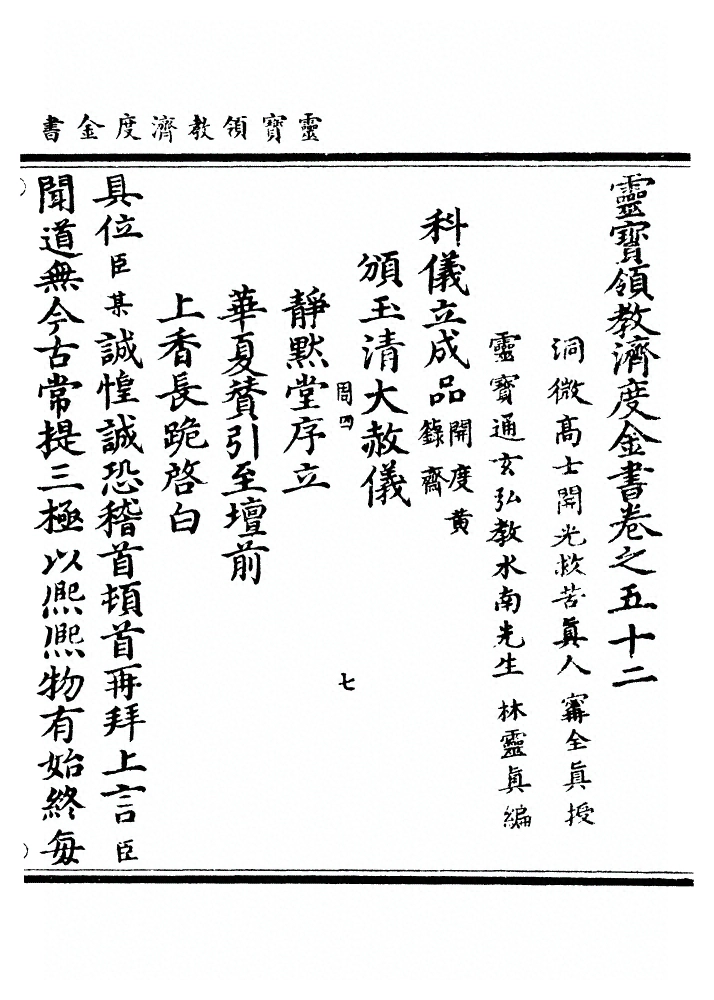 靈寶領教濟度金書
靈寶領教濟度金書卷之五十二
洞微高士開光救苦眞人甯全眞授
靈寶通玄弘教水南先生林靈眞編
科儀立成品開度黃籙齋
頒玉清大赦儀
周四
七
靜默堂序立
華夏贊引至壇前
上香長跪啓白
具位臣某誠惶誠恐稽首頓首再拜上言臣
聞道無今古常提三極以熈熈物有始終每